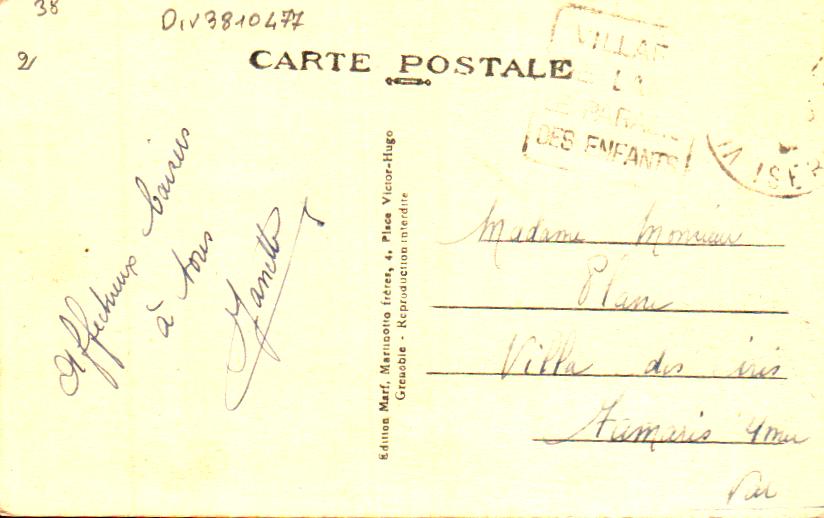 38
Div3810477
2
CARTE POSTALE
VILLAR
LA
DES ENFANTS
ISER
Affectueux baisers
à tous
Edition Marf, Martinotto frères, 4, Place Victor-Hugo
Grenoble - Reproduction interdite
Madame Monsieur
Plane
Villa des iris
Tamaris s/mer
Var